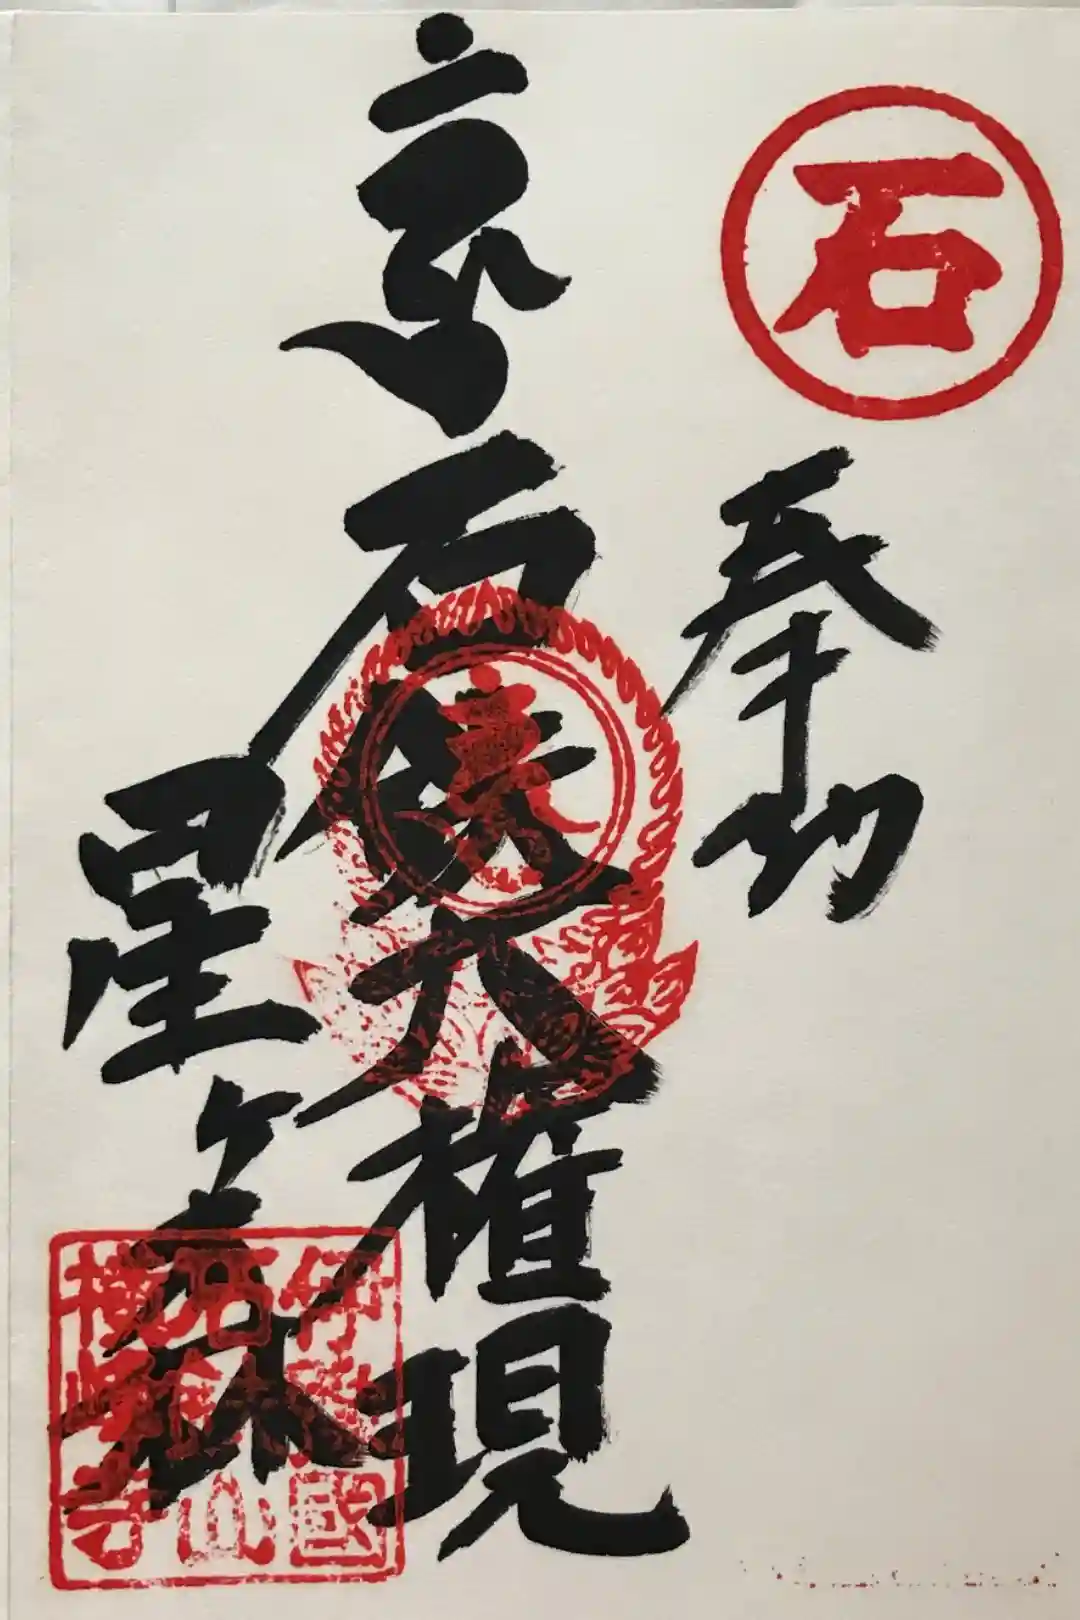 石
奉
石鉄大権現
星ヶ森
伊豫國
石鉄山
横峰寺